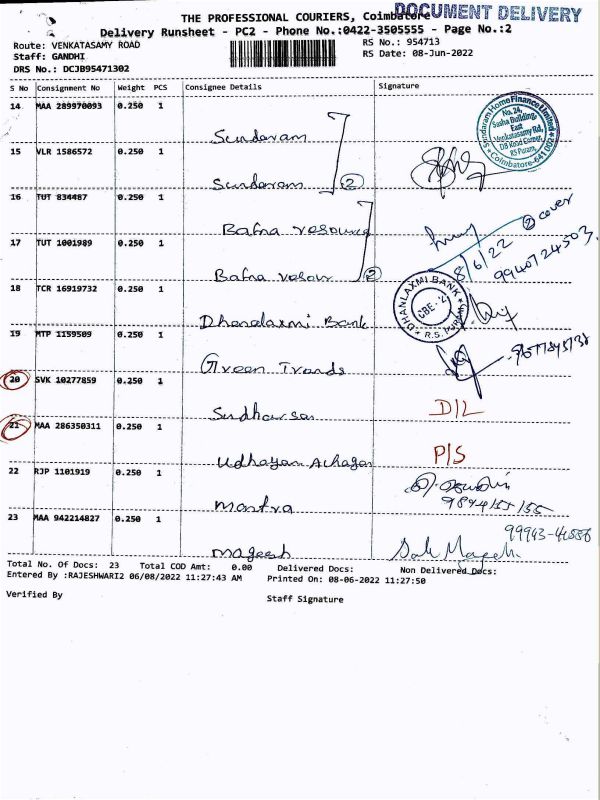 DOCUMENT DELIVERY
THE PROFESSIONAL COURIERS, Coimbatore
Delivery Runsheet - PC2 - Phone No.:0422-3505555 - Page No.:2
Route: VENKATASAMY ROAD
RS No.: 954713
Staff: GANDHI
RS Date: 08-Jun-2022
DRS No.: DCJB95471302
S No Consignment No Weight PCS Consignee Details Signature
14 MAA 289970093 0.250 1
Sundaram
Sundaram Home Finance Limited
No. 24,
Sasha Building
East
Venkatasamy Rd,
DB Road Corner,
RS Puram,
Coimbatore-641 002
15 VLR 1586572 0.250 1
Sundaram 2
16 TUT 834487 0.250 1
Bafna resource
2 cover
8/6/22
9940724503
17 TUT 1001989 0.250 1
Bafna 2
18 TCR 16919732 0.250 1
Dhanalaxmi Bank
DHANLAXMI BANK
R.S. PURAM
19 MTP 1159509 0.250 1
Green Trends
20 SVK 10277859 0.250 1
Sudharsan D/L
21 MAA 286350311 0.250 1
P/S
22 RJP 1101919 0.250 1
Mantra
23 MAA 942214827 0.250 1
Magesh
Total No. Of Docs: 23 Total COD Amt: 0.00 Delivered Docs: Non Delivered Docs:
Entered By :RAJESHWARI2 06/08/2022 11:27:43 AM Printed On: 08-06-2022 11:27:50
Verified By
Staff Signature